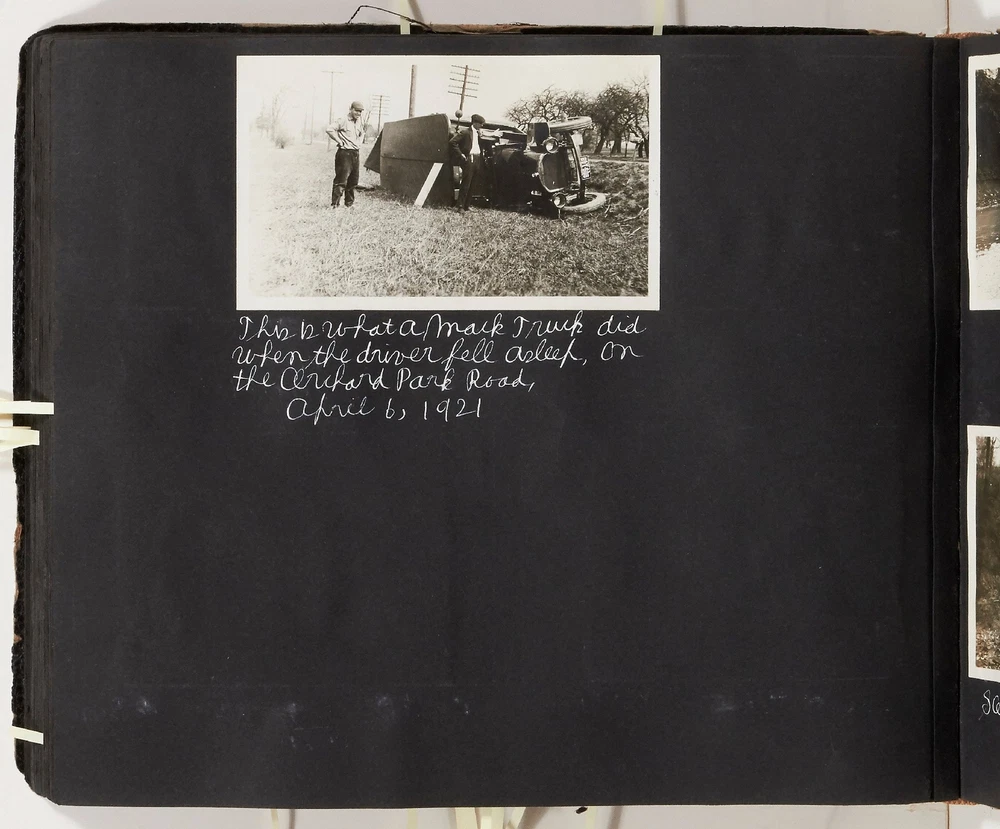 This is what a Mack Truck did
when the driver fell asleep, on
the Orchard Park Road,
April 6, 1921